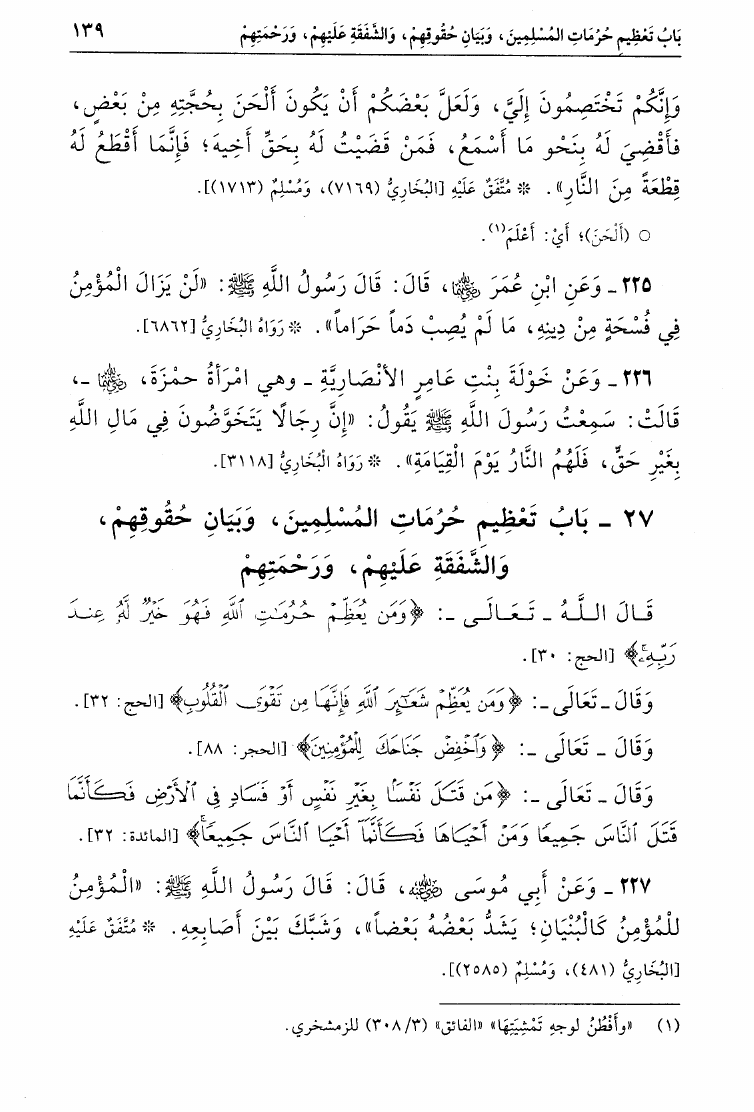 بَابُ تَعْظِيمِ حُرُمَاتِ المُسْلِمِينَ، وَبَيَانِ حُقُوقِهِمْ، وَالشَّفَقَةِ عَلَيْهِمْ، وَرَحْمَتِهِمْ ١٣٩
وَإِنَّكُمْ تَخْتَصِمُونَ إِلَيَّ، وَلَعَلَّ بَعْضَكُمْ أَنْ يَكُونَ أَلْحَنَ بِحُجَّتِهِ مِنْ بَعْضٍ،
فأَقْضِيَ لَهُ بِنَحْوِ مَا أَسْمَعُ، فَمَنْ قَضَيْتُ لَهُ بِحَقِّ أَخِيهَ؛ فَإِنَّمَا أَقْطَعُ لَهُ
قِطْعَةً مِنَ النَّارِ». * مُتَّفَقٌ عَلَيْهِ [البُخَارِيُّ (٧١٦٩)، وَمُسْلِمٌ (١٧١٣)].
○ (أَلْحَنَ)؛ أَيْ: أَعْلَمَ(١).
٢٢٥ ـ وَعَنِ ابْنِ عُمَرَ ﵄، قَالَ: قَالَ رَسُولُ اللَّهِ ﷺ: «لَنْ يَزَالَ الْمُؤْمِنُ
فِي فُسْحَةٍ مِنْ دِينِهِ، مَا لَمْ يُصِبْ دَماً حَرَاماً». * رَوَاهُ البُخَارِيُّ [٦٨٦٢].
٢٢٦ ـ وَعَنْ خَوْلَةَ بِنْتِ عَامِرٍ الأَنْصَارِيَّةِ ـ وهي امْرَأَةُ حمْزَةَ، ﵄ ـ،
قَالَتْ: سَمِعْتُ رَسُولَ اللَّهِ ﷺ يَقُولُ: «إِنَّ رِجَالًا يَتَخَوَّضُونَ فِي مَالِ اللَّهِ
بِغَيْرِ حَقٍّ، فَلَهُمُ النَّارُ يَوْمَ الْقِيَامَةِ». * رَوَاهُ الْبُخَارِيُّ [٣١١٨].
٢٧ ـ بَابُ تَعْظِيمِ حُرُمَاتِ المُسْلِمِينَ، وَبَيَانِ حُقُوقِهِمْ،
وَالشَّفَقَةِ عَلَيْهِمْ، وَرَحْمَتِهِمْ
قَالَ اللَّهُ ـ تَعَالَى ـ: ﴿وَمَن يُعَظِّمْ حُرُمَٰتِ ٱللَّهِ فَهُوَ خَيْرٌ لَّهُۥ عِندَ
رَبِّهِۦ﴾ [الحج: ٣٠].
وَقَالَ ـ تَعَالَى ـ: ﴿وَمَن يُعَظِّمْ شَعَٰٓئِرَ ٱللَّهِ فَإِنَّهَا مِن تَقْوَى ٱلْقُلُوبِ﴾ [الحج: ٣٢].
وَقَالَ ـ تَعَالَى ـ: ﴿وَٱخْفِضْ جَنَاحَكَ لِلْمُؤْمِنِينَ﴾ [الحجر: ٨٨].
وَقَالَ ـ تَعَالَى ـ: ﴿مَن قَتَلَ نَفْسًۢا بِغَيْرِ نَفْسٍ أَوْ فَسَادٍ فِي ٱلْأَرْضِ فَكَأَنَّمَا
قَتَلَ ٱلنَّاسَ جَمِيعًا وَمَنْ أَحْيَاهَا فَكَأَنَّمَآ أَحْيَا ٱلنَّاسَ جَمِيعًا﴾ [المائدة: ٣٢].
٢٢٧ ـ وَعَنْ أَبِي مُوسَى ﵁، قَالَ: قَالَ رَسُولُ اللَّهِ ﷺ: «الْمُؤْمِنُ
لِلْمُؤْمِنُ كَالْبُنْيَانِ؛ يَشَدُّ بَعْضُهُ بَعْضاً»، وَشَبَّكَ بَيْنَ أَصَابِعِهِ. * مُتَّفَقٌ عَلَيْهِ
[البُخَارِيُّ (٤٨١)، وَمُسْلِمٌ (٢٥٨٥)].
(١) «وأَفْطَنُ لوجهِ تَمْشِيَتِهَا» «الفائق» (٣٠٨/٣) للزمشخري.